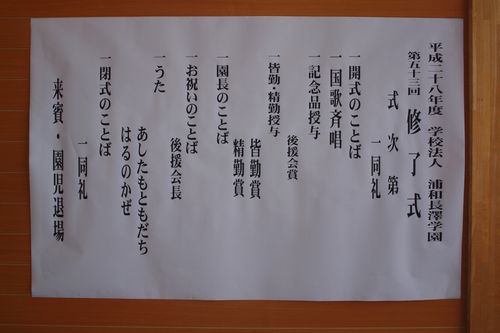 平成二十八年度 学校法人 浦和長澤学園
第五十三回 修了式
式次第
一同礼
一開式のことば
一国歌斉唱
一記念品授与
後援会賞
一皆勤・精勤授与
皆勤賞
精勤賞
一園長のことば
後援会長
一お祝いのことば
一うた
あしたもともだち
はるのかぜ
一閉式のことば
一同礼
来賓・園児退場